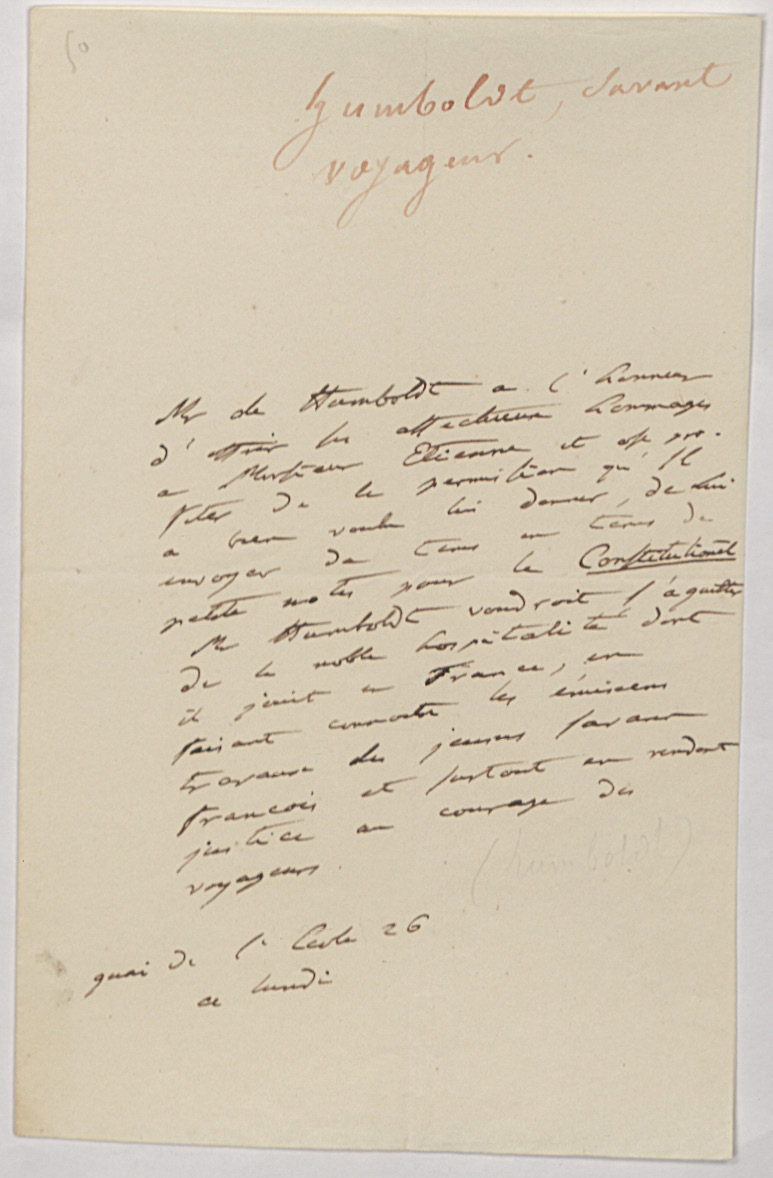 50
humboldt, savant
voyageur.
Mr de Humboldt a l'honneur
d'offrir ses affectueux hommages
a Monsieur Etienne et ose pro-
fiter de la permission qu'Il
a bien voulu lui donner, de Lui
envoyer de tems en tems de
petite notes pour le Constitutionel
Mr Humboldt voudroit s'aquitter
de la noble hospitalité dont
il jouit en France, en
faisant connoitre les
travaux des jeunes savans
francois et surtout en rendant
justice au courage des
voyageurs.
(humboldt)
quai de l'Ecole 26
ce lundi